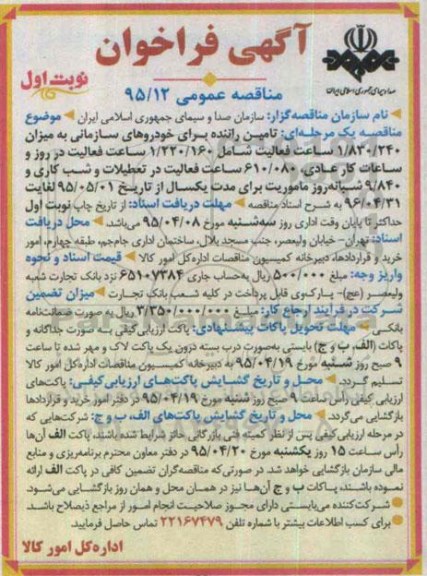 آگهی فراخوان
نوبت اول
صدا و سیمای جمهوری اسلامی ایران
مناقصه عمومی ۹۵/۱۲
نام سازمان مناقصه‌گزار: سازمان صدا و سیمای جمهوری اسلامی ایران ◄ موضوع
مناقصه یک مرحله‌ای: تامین راننده برای خودروهای سازمانی به میزان
۱/۸۳۰/۲۴۰ ساعت فعالیت شامل ۱/۲۲۰/۱۶۰ ساعت فعالیت در روز و
ساعات کار عادی، ۶۱۰/۰۸۰ ساعت فعالیت در تعطیلات و شب کاری و
۹/۸۴۰ شبانه‌روز ماموریت برای مدت یکسال از تاریخ ۹۵/۰۵/۰۱ لغایت
۹۶/۰۴/۳۱ به شرح اسناد مناقصه ◄ مهلت دریافت اسناد: از تاریخ چاپ نوبت اول
حداکثر تا پایان وقت اداری روز سه‌شنبه مورخ ۹۵/۰۴/۰۸ می‌باشد. ◄ محل دریافت
اسناد: تهران- خیابان ولیعصر، جنب مسجد بلال، ساختمان اداری جام‌جم، طبقه چهارم، امور
خرید و قراردادها، دبیرخانه کمیسیون مناقصات اداره‌کل امور کالا ◄ قیمت اسناد و نحوه
واریز وجه: مبلغ ۵۰۰/۰۰۰ ریال به‌حساب جاری ۶۵۱۰۷۳۸۴ نزد بانک تجارت شعبه
ولیعصر (عج)- پارک‌وی قابل پرداخت در کلیه شعب بانک تجارت ◄ میزان تضمین
شرکت در فرایند ارجاع کار: مبلغ ۳/۳۵۰/۰۰۰/۰۰۰ ریال به صورت ضمانت‌نامه
بانکی ◄ مهلت تحویل پاکات پیشنهادی: پاکت ارزیابی کیفی به صورت جداگانه و
پاکات (الف، ب و ج) بایستی به‌صورت درب بسته درون یک پاکت لاک و مهر شده تا ساعت
۹ صبح روز شنبه مورخ ۹۵/۰۴/۱۹ به دبیرخانه کمیسیون مناقصات اداره‌کل امور کالا
تسلیم گردد. ◄ محل و تاریخ گشایش پاکت‌های ارزیابی‌کیفی: پاکت‌های
ارزیابی کیفی رأس ساعت ۹ صبح روز شنبه مورخ ۹۵/۰۴/۱۹ در دفتر امور خرید و قراردادها
بازگشایی می‌گردد. ◄ محل و تاریخ گشایش پاکت‌های الف، ب و ج: شرکت‌هایی که
در مرحله ارزیابی‌کیفی پس از نظر کمیته فنی بازرگانی حائز شرایط شده باشند، پاکت الف آن‌ها
رأس ساعت ۱۵ روز یکشنبه مورخ ۹۵/۰۴/۲۰ در دفتر معاون محترم برنامه‌ریزی و منابع
مالی سازمان بازگشایی خواهد شد. در صورتی‌که مناقصه‌گران تضمین کافی در پاکت الف ارائه
نموده باشند، پاکات ب و ج آن‌ها نیز در همان محل و همان روز بازگشایی می‌شود.
● شرکت‌کننده می‌بایستی دارای مجوز صلاحیت انجام امور از مراجع ذیصلاح باشد.
● برای کسب اطلاعات بیشتر با شماره تلفن ۲۲۱۶۷۴۷۹ تماس حاصل فرمایید.
اداره‌کل امور کالا